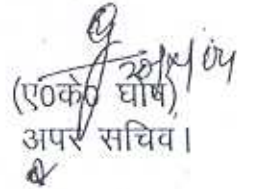 (ए०के० घोष)
अपर सचिव।